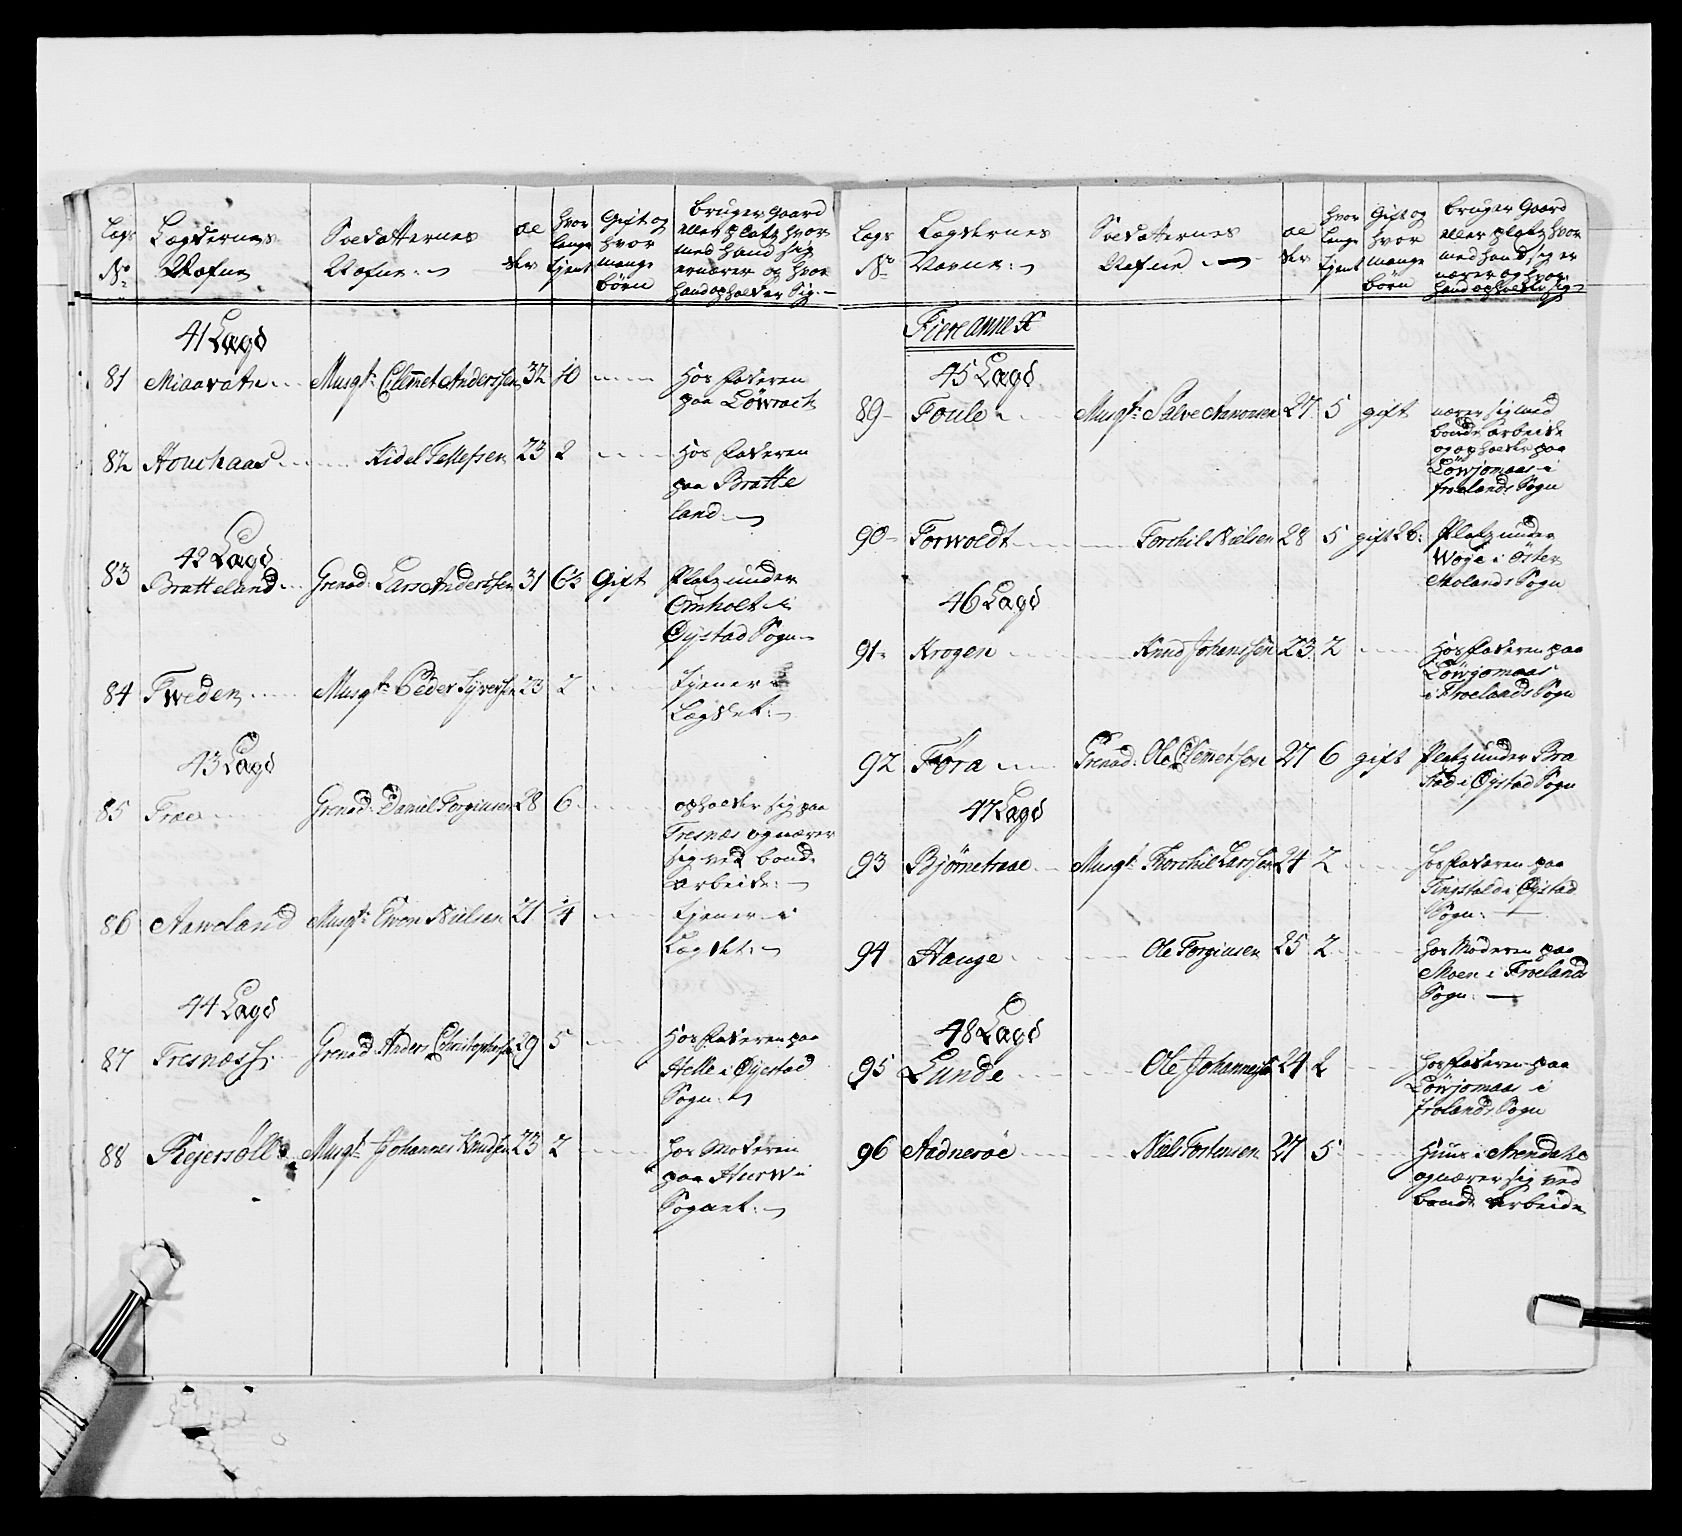 Lægs No
Lægdernes Nafne
Soldatternes Nafne
al der
hvor længe tjent
Gift og hvor mange börn
bruger Gaard eller platz hvor med hand sig ernærer og hvor hand opholder Sig
41 Lægd
81 Miaavatn Musqt: Clemet Anderssen 32 10
hos faderen
paa Löwrack
82 Houchaas Kidel Tellefsen 23 2
hos faderen
paa Bratte
land
42 Lægd
83 Bratteland Grenad: Lars Anderssen 31 6½ Gift
Platz under
Omholt i
Öystad Sogn
84 Tweden Musqt: Peder Syversen 23 2
tjener i
Lægdet
43 Lægd
85 Træe Grenad: Daniel Torgiusen 28 6
opholder sig paa
Tresnæs og nærer
sig ved bonde
arbeide
86 Aaweland Musqt: Even Nielsen 21 ¼
tjener i
Lægdet
44 Lægd
87 Tresnæss Grenad Anders Christophersen 29 5
hos faderen paa
Helle i Öyestad
Sogn
88 Rejersöll Musqt: Johannes Knudsen 23 2
hos Moderen
paa
Sognet
Lægs No
Lægdernes Navne
Soldatternes Nafne
al der
hvor længe tjent
Gift og hvor mange börn
bruger Gaard eller platz hvor med hand sig er nærer og hvor hand opholder sig
Fiere annex
45 Lægd
89 Foule Musqt: Salve Aanonsen 27 5 gift
nærer sig med
bonde arbeide
og opholder paa
Löwjomaas i
froelands Sogn
90 Torwoldt Torchil Nielsen 28 5 gift 2 b:
Platz under
Woje i Öster
Molands Sogn
46 Lægd
91 Krogen Knud Johanssen 23 2
hos faderen paa
Löwjomaas
i Froelands Sogn
92 Fora Grenad: Ole Clemetsen 27 6 gift
Platz under Bra
stad i Öystad Sogn
47 Lægd
93 Björnetraae Musqt: Torchil Larssen 24 2
hos faderen paa
Tingstold i Öystad
Sogn
94 Hauge Ole Torgiusen 25 2
hos Moderen paa
Moen i Froeland
Sogn
48 Lægd
95 Lunde Ole Johannessen 24 2
hos faderen paa
Löwjomaas i
frolands Sogn
96 Aadneröe Niels Torstensen 27 5
Huus i Arendahl
og nærer sig ved
bonde arbeide